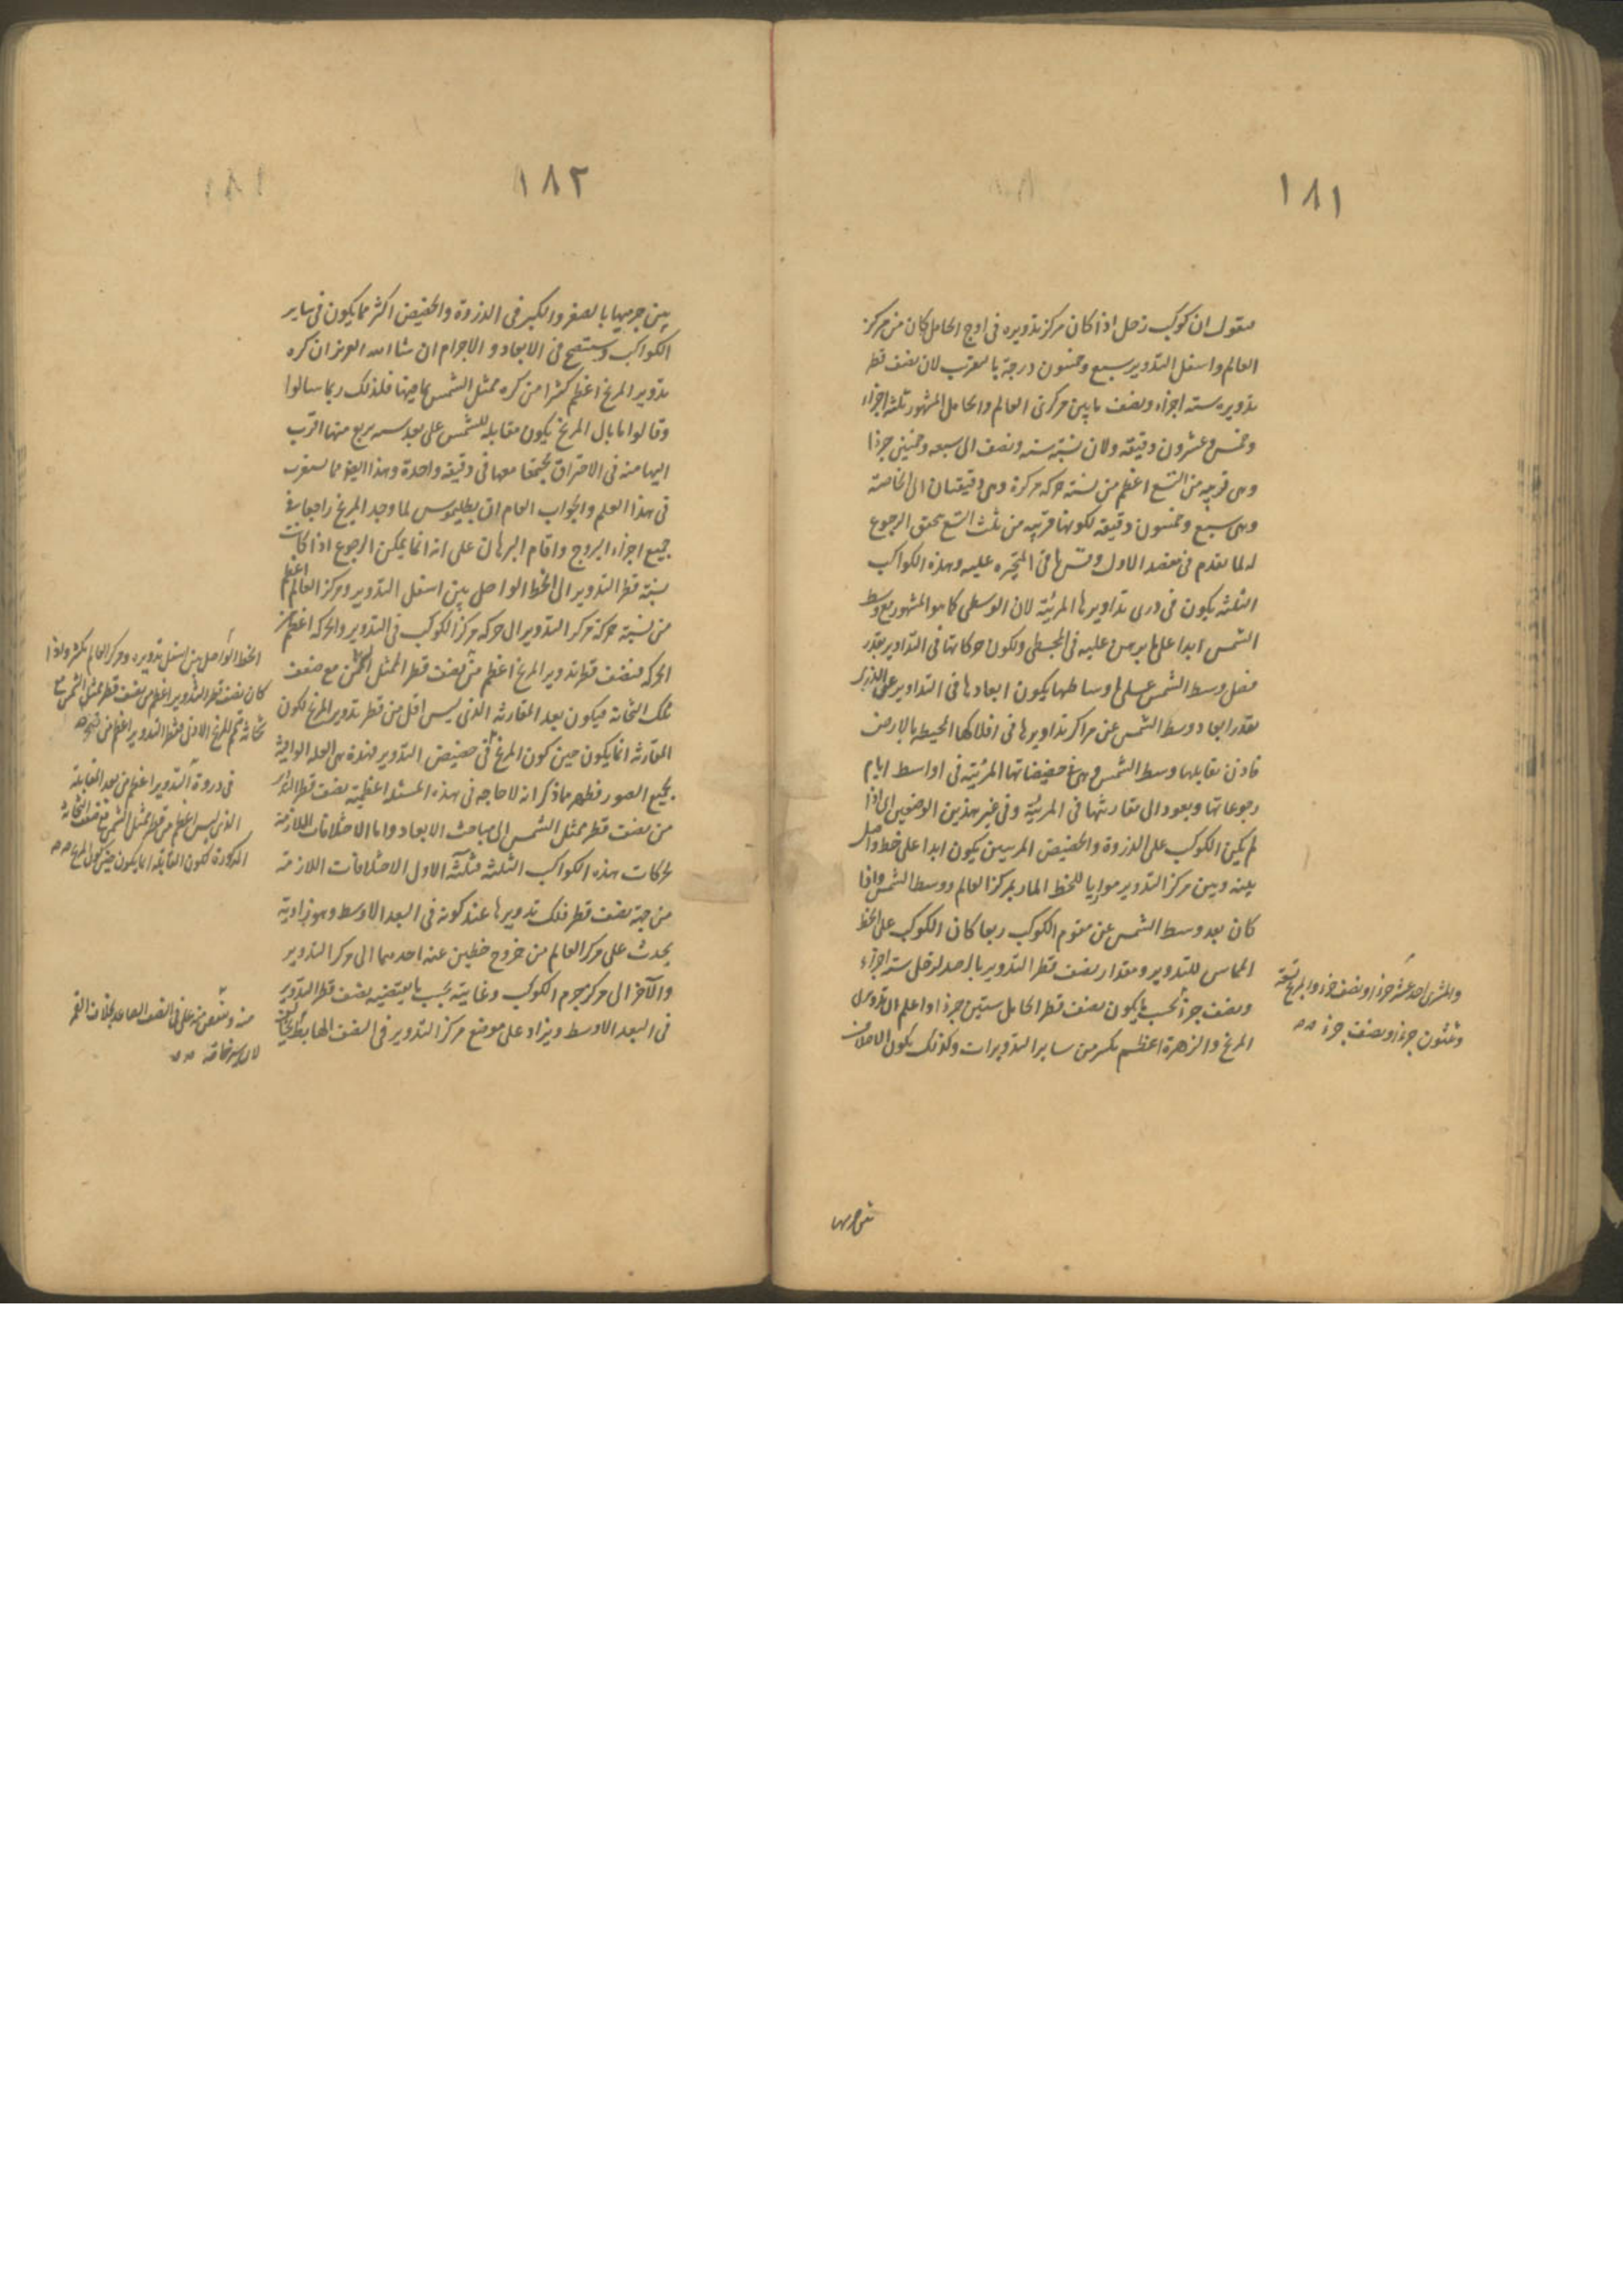 ١٨١
فنقول ان كوكب زحل اذا كان مركز تدويره فى اوج الحامل كان من مركز
العالم واسفل التدوير سبع وخمسون درجة بالتقريب لان نصف قطر
تدويره ستة اجزاء ونصف ما بين مركزى العالم والحامل المشهور ثلثة اجزاء
وخمس وعشرون دقيقة ولان نسبة ستة ونصف الى سبعة وخمسين جزءا
وهى قريبة من التسع اعظم من نسبة حركة مركزه وهى دقيقتان الى الخاصة
وهى سبع وخمسون دقيقة لكونها قريبة من ثلث التسع تحقق الرجوع
له لما تقدم فى مقصد الاول وقس باقى المتحيرة عليه وهذه الكواكب
الثلثة يكون فى ذرى تداويرها المرئية لان الوسطى كما هو المشهور مع وسط
الشمس ابدا على ما برهن عليه فى المجسطى وتكون حركاتها فى التداوير بقدر
فضل وسط الشمس على اوساطها يكون ابعادها فى التداوير عن الذرى
بقدر ابعاد وسط الشمس عن مراكز تداويرها فى افلاكها المحيطة بالارض
فاذن تقابلها وسط الشمس وهى فى حضيضاتها المرئية فى اواسط ايام
رجوعاتها ويعود الى مقارنتها فى المرئية وفى غير هذين الوضعين اى اذا
لم يكن الكوكب على الذروة والحضيض المرئيين يكون ابدا على خط واصل
بينه وبين مركز التدوير موازيا للخط المار بمركز العالم ووسط الشمس واذا
كان بعد وسط الشمس عن مقوم الكوكب ربعا كان الكوكب على الخط
المماس للتدوير ومقدار نصف قطر التدوير بالرصد لزحل ستة اجزاء
ونصف جزء بحسب ما يكون نصف قطر الحامل ستين جزءا واعلم ان تدويرى
المريخ والزهرة اعظم بكثير من ساير التدويرات وكذلك يكون الاختلاف
وللمشترى احد عشر جزءا ونصف جزء وللمريخ تسعة
وثلثون جزءا ونصف جزء صح
بين جرميها
١٨٢
بين جرميها بالصغر والكبر فى الذروة والحضيض اكثر مما يكون فى ساير
الكواكب وستتضح فى الابعاد والاجرام ان شا الله العزيز ان كره
تدوير المريخ اعظم كثيرا من كره ممثل الشمس بما فيها فلذلك ربما سالوا
وقالوا ما بال المريخ يكون مقابله للشمس على بعد يسير يربع منها اقرب
اليها منه فى الاحتراق مجتمعا معها فى دقيقة واحدة وهذا ايضا مما يستغرب
فى هذا العلم والجواب العام ان بطليموس لما وجد المريخ راجعا فى
جميع اجزاء البروج واقام البرهان على انه انما يمكن الرجوع اذا كانت
نسبة قطر التدوير الى الخط الواصل بين اسفل التدوير ومركز العالم اعظم
من نسبة حركة مركز التدوير الى حركة مركز الكوكب فى التدوير والحركة اعظم من
الحركة فنصف قطر تدوير المريخ اعظم من نصف قطر الممثل للشمس مع ضعف
تلك الثخانة فيكون بعد المقارنة الذى ليس اقل من قطر تدوير المريخ لكون
المقارنة انما يكون حين كون المريخ فى حضيض التدوير فهذه هى العلة الوافية
بجميع الصور فظهر مما ذكر انه لا حاجة فى هذه المسئلة اعظمية نصف قطر التدوير
من نصف قطر ممثل الشمس الى مباحث الابعاد واما الاختلافات اللازمة
لحركات هذه الكواكب الثلثة فثلثة الاول الاختلافات اللازمة
من جهة نصف قطر فلك تدويرها عند كونه فى البعد الاوسط وهو زاوية
يحدث على مركز العالم من خروج خطين عنه احدهما الى مركز التدوير
والآخر الى مركز جرم الكوكب وغايته بحسب ما يقتضيه نصف قطر التدوير
فى البعد الاوسط ويزاد على موضع مركز التدوير فى النصف الهابط
الخط الواصل بين اسفل تدويره ومركز العالم بكثير ولذا
كان نصف قطر التدوير اعظم من نصف قطر ممثل الشمس مع
فى ذروة التدوير اعظم من بعد المقابلة
الذى ليس اعظم من قطر ممثل الشمس مع ضعف الثخانة
المذكورة لكون المقابلة انما يكون حين كون المريخ صح
منه وينقص منه على فى النصف الصاعد بخلاف القمر